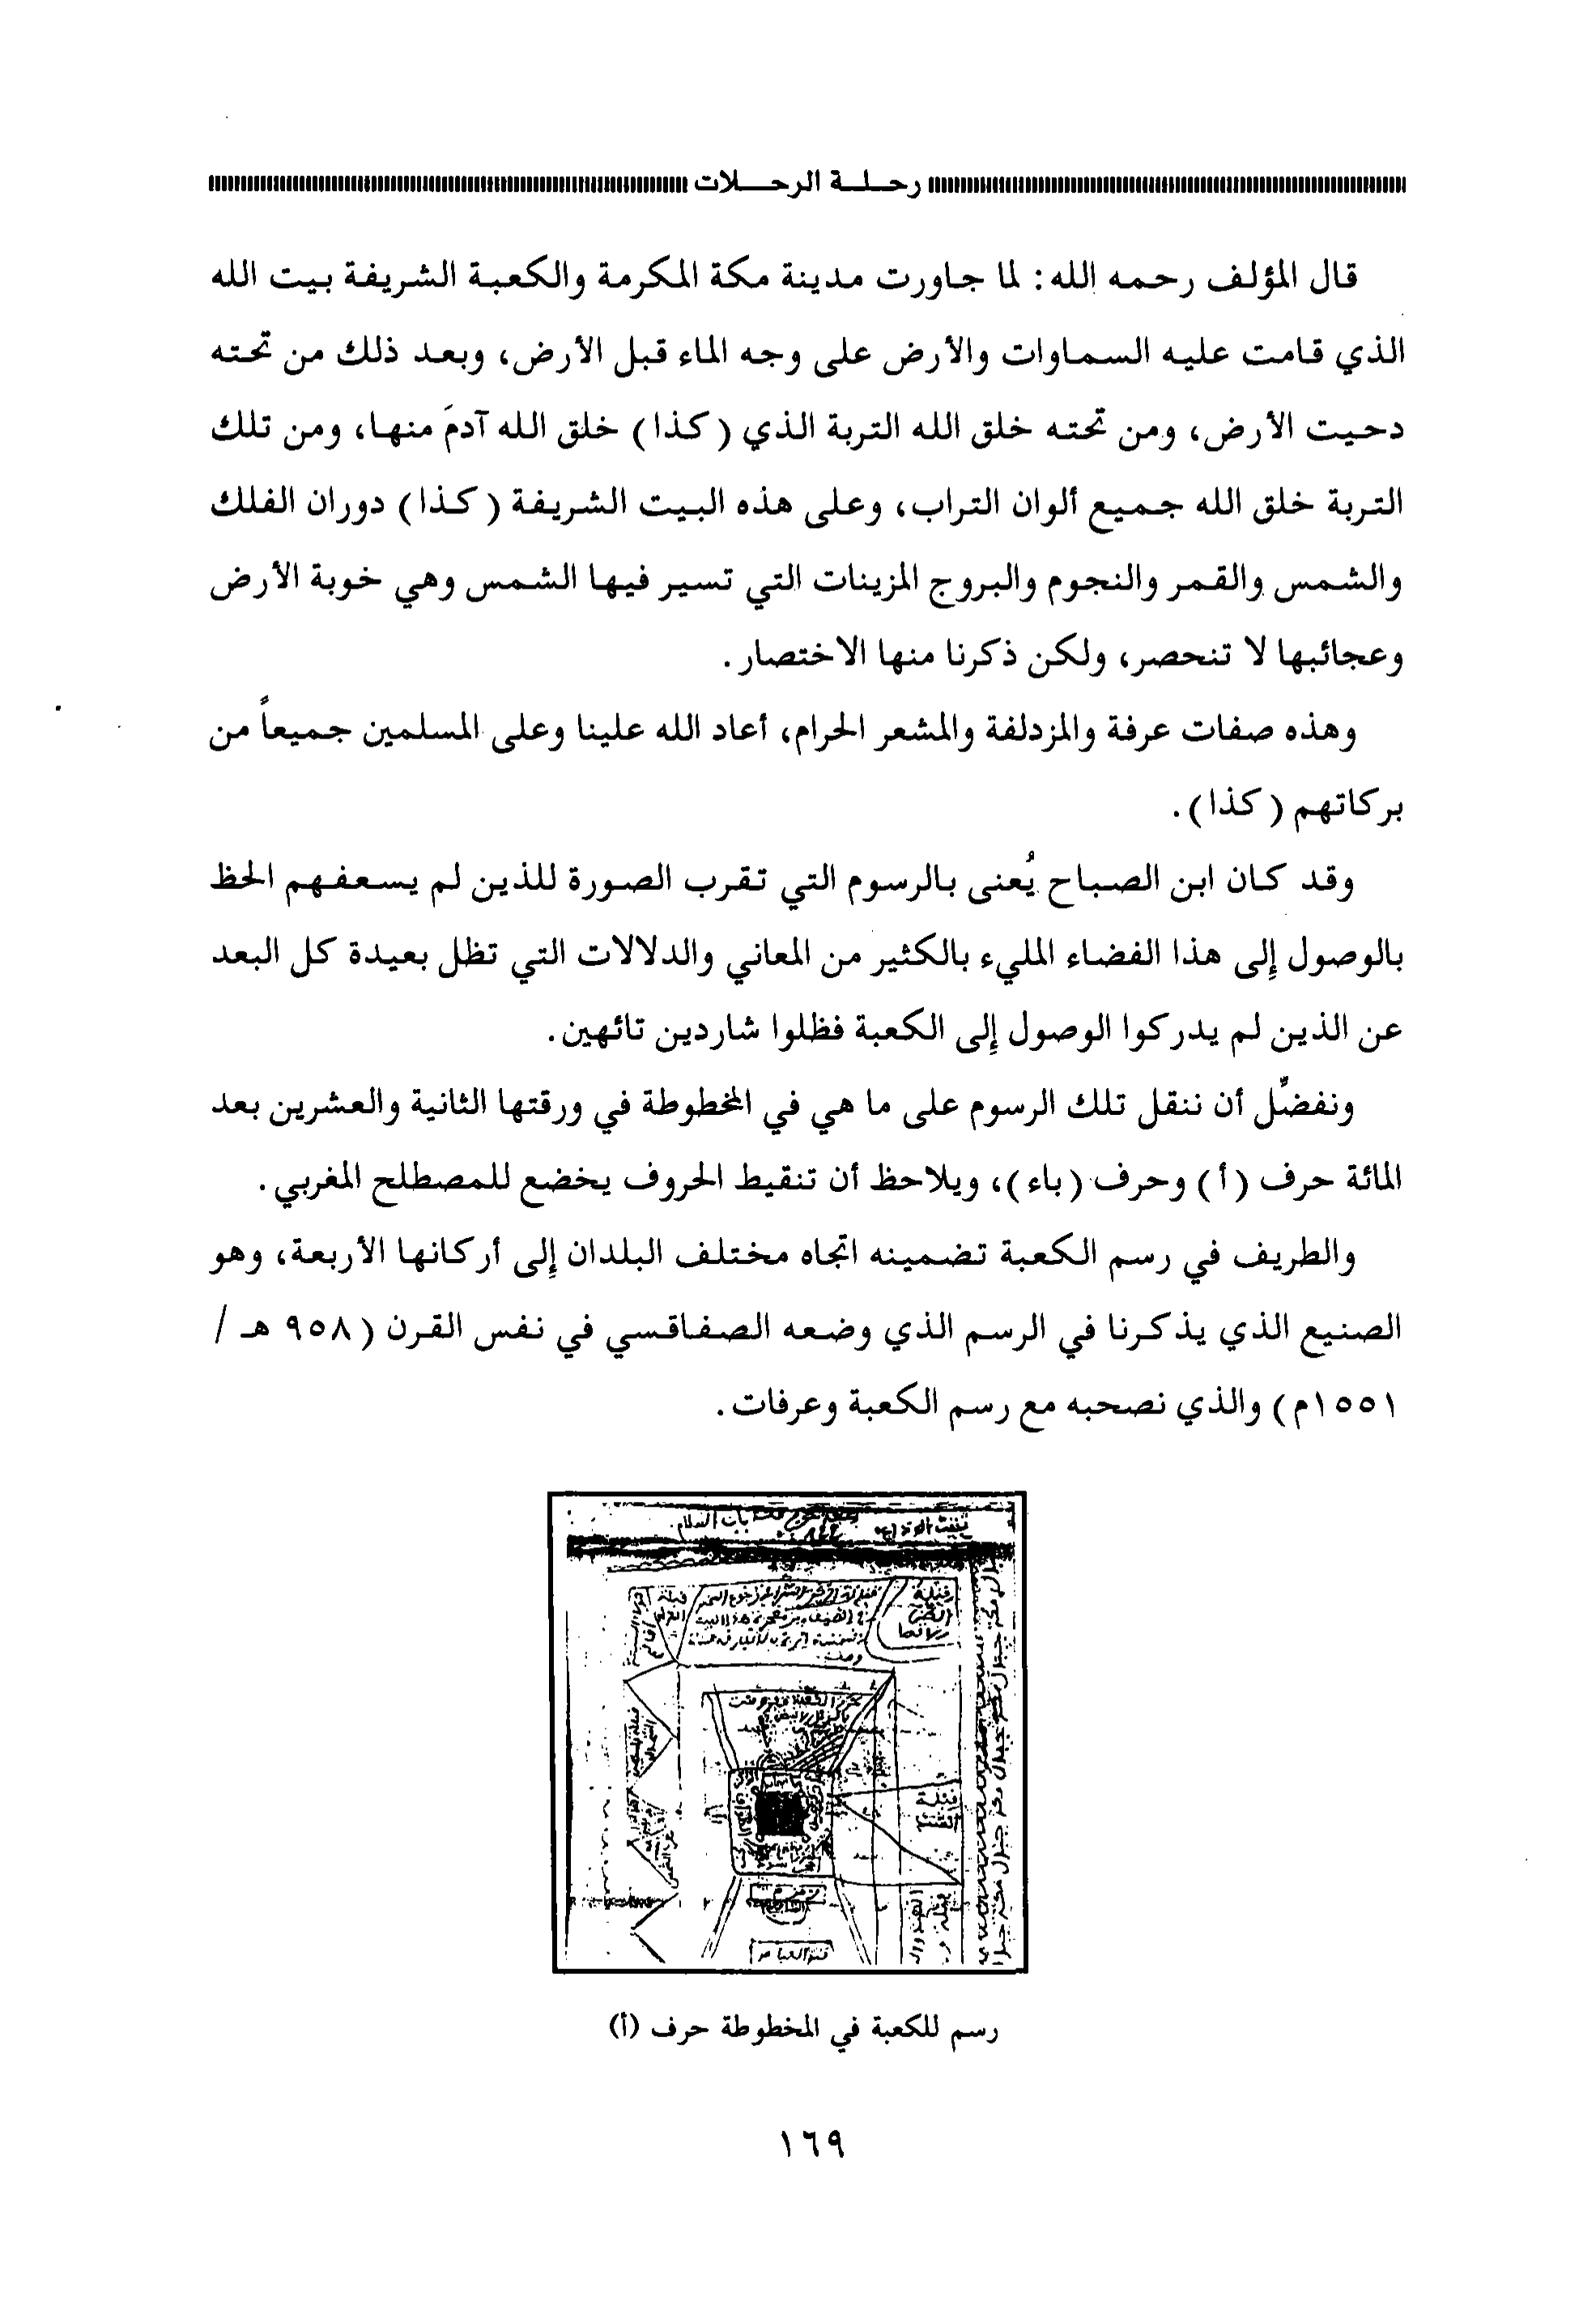 رحلة الرحلات
قال المؤلف رحمه الله: لما جاورت مدينة مكة المكرمة والكعبة الشريفة بيت الله
الذي قامت عليه السماوات والأرض على وجه الماء قبل الأرض، وبعد ذلك من تحته
دحيت الأرض، ومن تحته خلق الله التربة الذي (كذا) خلق الله آدمَ منها، ومن تلك
التربة خلق الله جميع ألوان التراب، وعلى هذه البيت الشريفة (كذا) دوران الفلك
والشمس والقمر والنجوم والبروج المزينات التي تسير فيها الشمس وهي خوبة الأرض
وعجائبها لا تنحصر، ولكن ذكرنا منها الاختصار.
وهذه صفات عرفة والمزدلفة والمشعر الحرام، أعاد الله علينا وعلى المسلمين جميعاً من
بركاتهم (كذا).
وقد كان ابن الصباح يُعنى بالرسوم التي تقرب الصورة للذين لم يسعفهم الحظ
بالوصول إلى هذا الفضاء المليء بالكثير من المعاني والدلالات التي تظل بعيدة كل البعد
عن الذين لم يدركوا الوصول إلى الكعبة فظلوا شاردين تائهين.
ونفضِّل أن ننقل تلك الرسوم على ما هي في المخطوطة في ورقتها الثانية والعشرين بعد
المائة حرف (أ) وحرف (باء)، ويلاحظ أن تنقيط الحروف يخضع للمصطلح المغربي.
والطريف في رسم الكعبة تضمينه اتجاه مختلف البلدان إلى أركانها الأربعة، وهو
الصنيع الذي يذكرنا في الرسم الذي وضعه الصفاقسي في نفس القرن (٩٥٨ هـ /
١٥٥١م) والذي نصحبه مع رسم الكعبة وعرفات.
باب السلام
رسم للكعبة في المخطوطة حرف (أ)
١٦٩